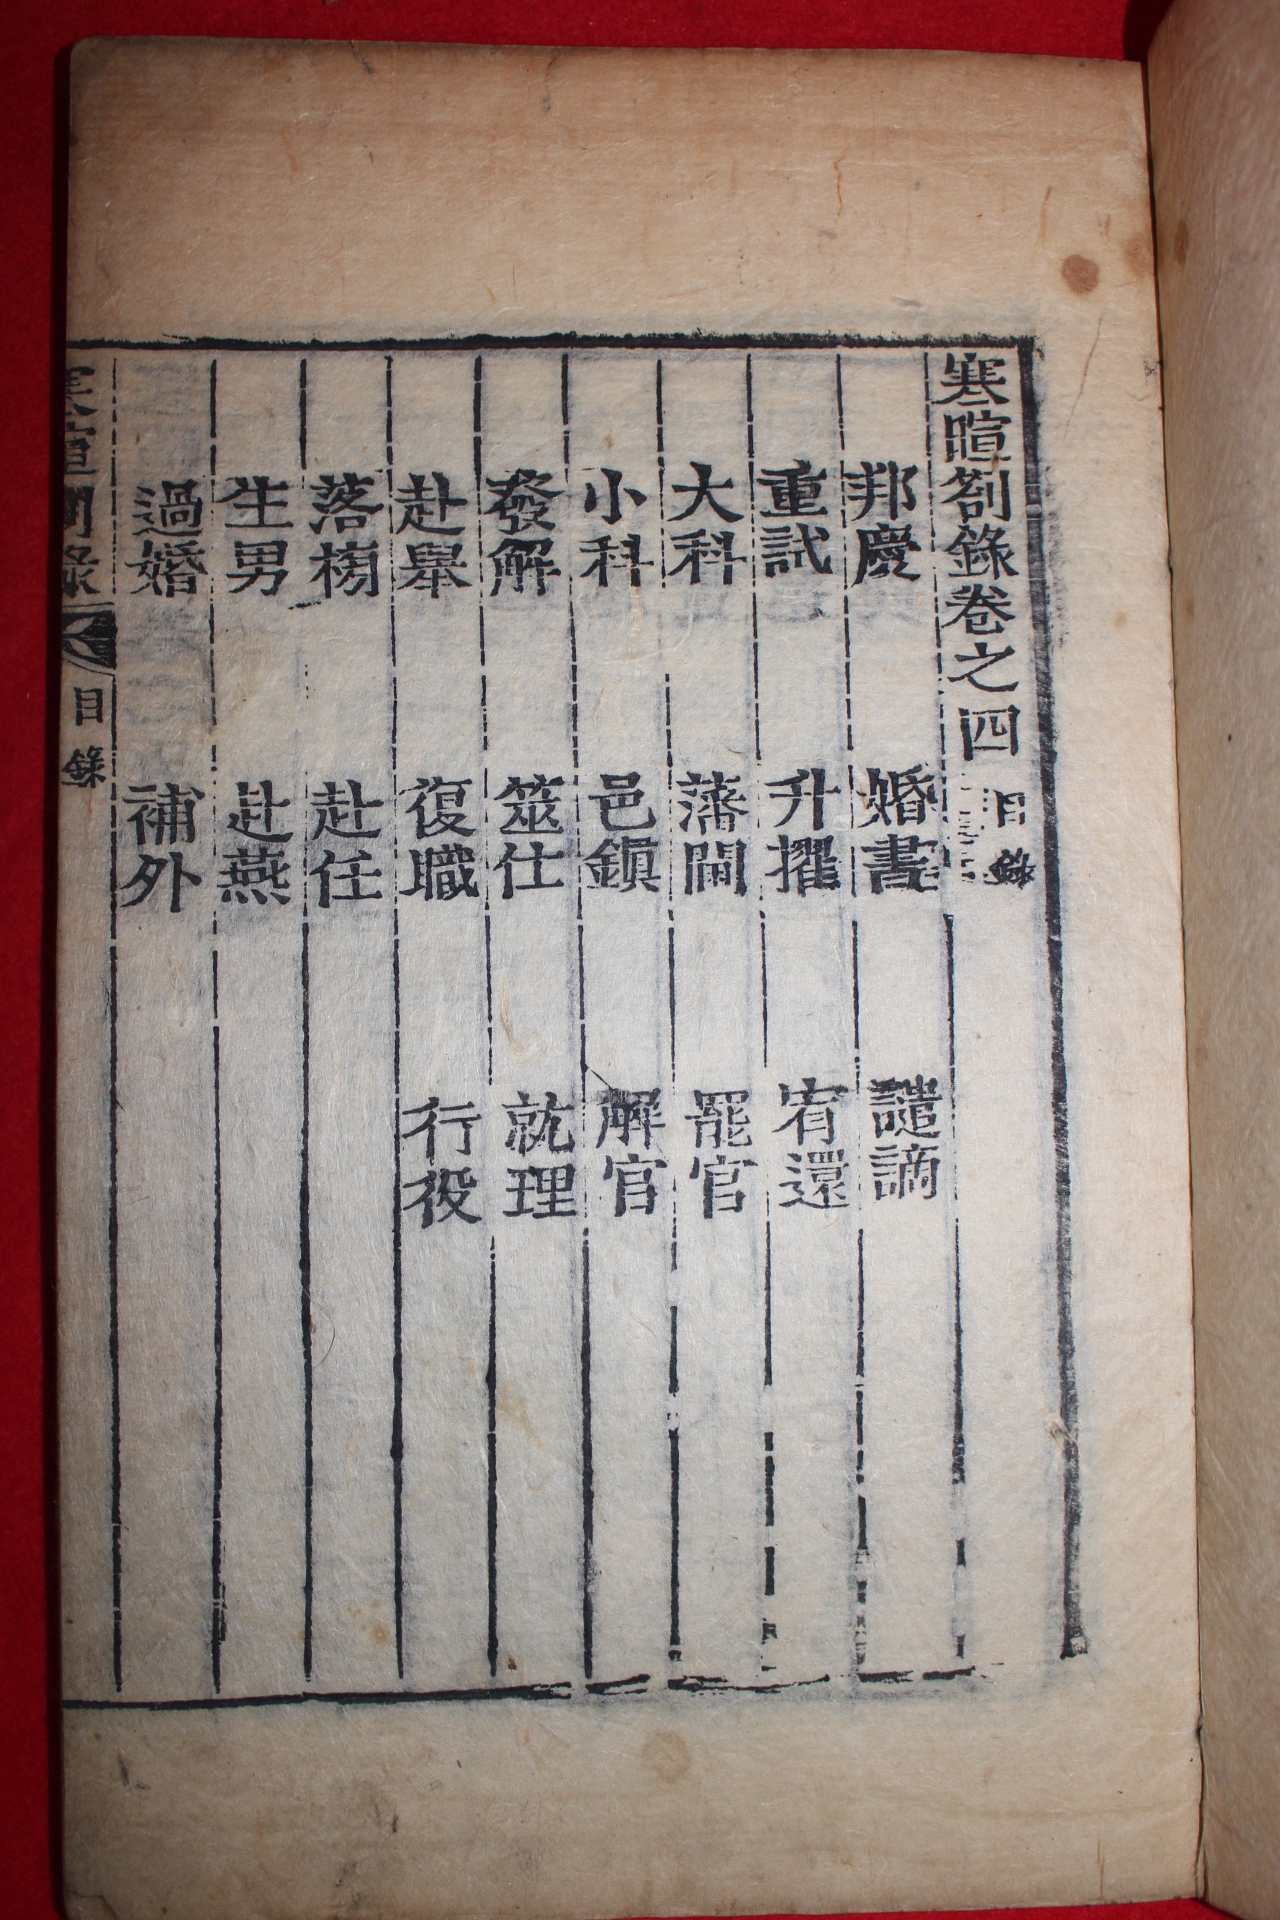 寒暄劄錄卷之四 目錄
邦慶 婚書 譴謫
重試 升擢 宥還
大科 藩閫 罷官
小科 邑鎭 解官
發解 筮仕 就理
赴擧 復職 行役
落榜 赴任
生男 赴燕
過婚 補外
寒暄劄錄 目錄